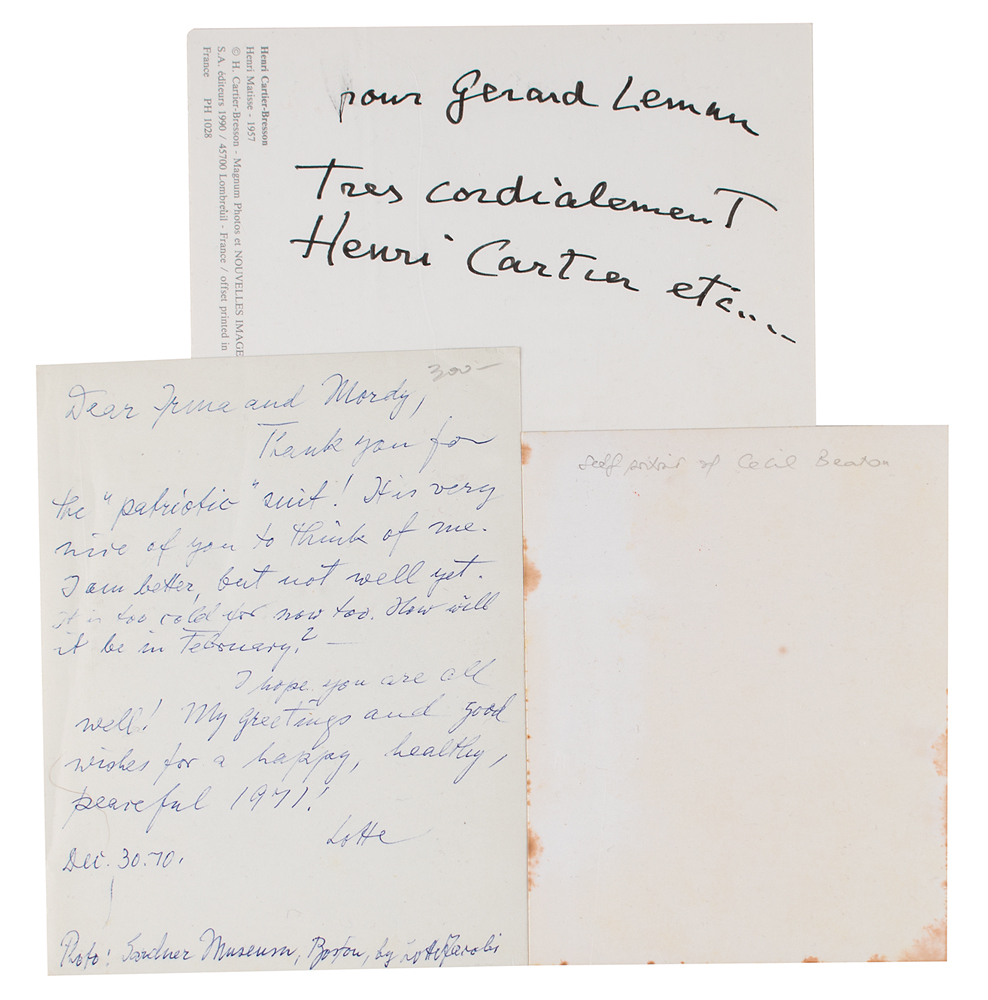 Henri Cartier-Bresson
Henri Matisse - 1957
© H. Cartier-Bresson - Magnum Photos et NOUVELLES IMAGE
S.A. éditeurs 1990 / 45700 Lombreuil - France / offset printed in
France PH 1028
pour Gerard Leman
Tres cordialement
Henri Cartier etc...
300-
Dear Irma and Mordy,
Thank you for
the "patriotic" suit! It is very
nice of you to think of me.
I am better, but not well yet.
it is too cold for now too. How will
it be in February? -
I hope you are all
well! My greetings and good
wishes for a happy, healthy,
peaceful 1971!
Lotte
Dec. 30.70.
Photo: Gardner Museum, Boston, by Lotte Jacobi
self portrait of Cecil Beaton